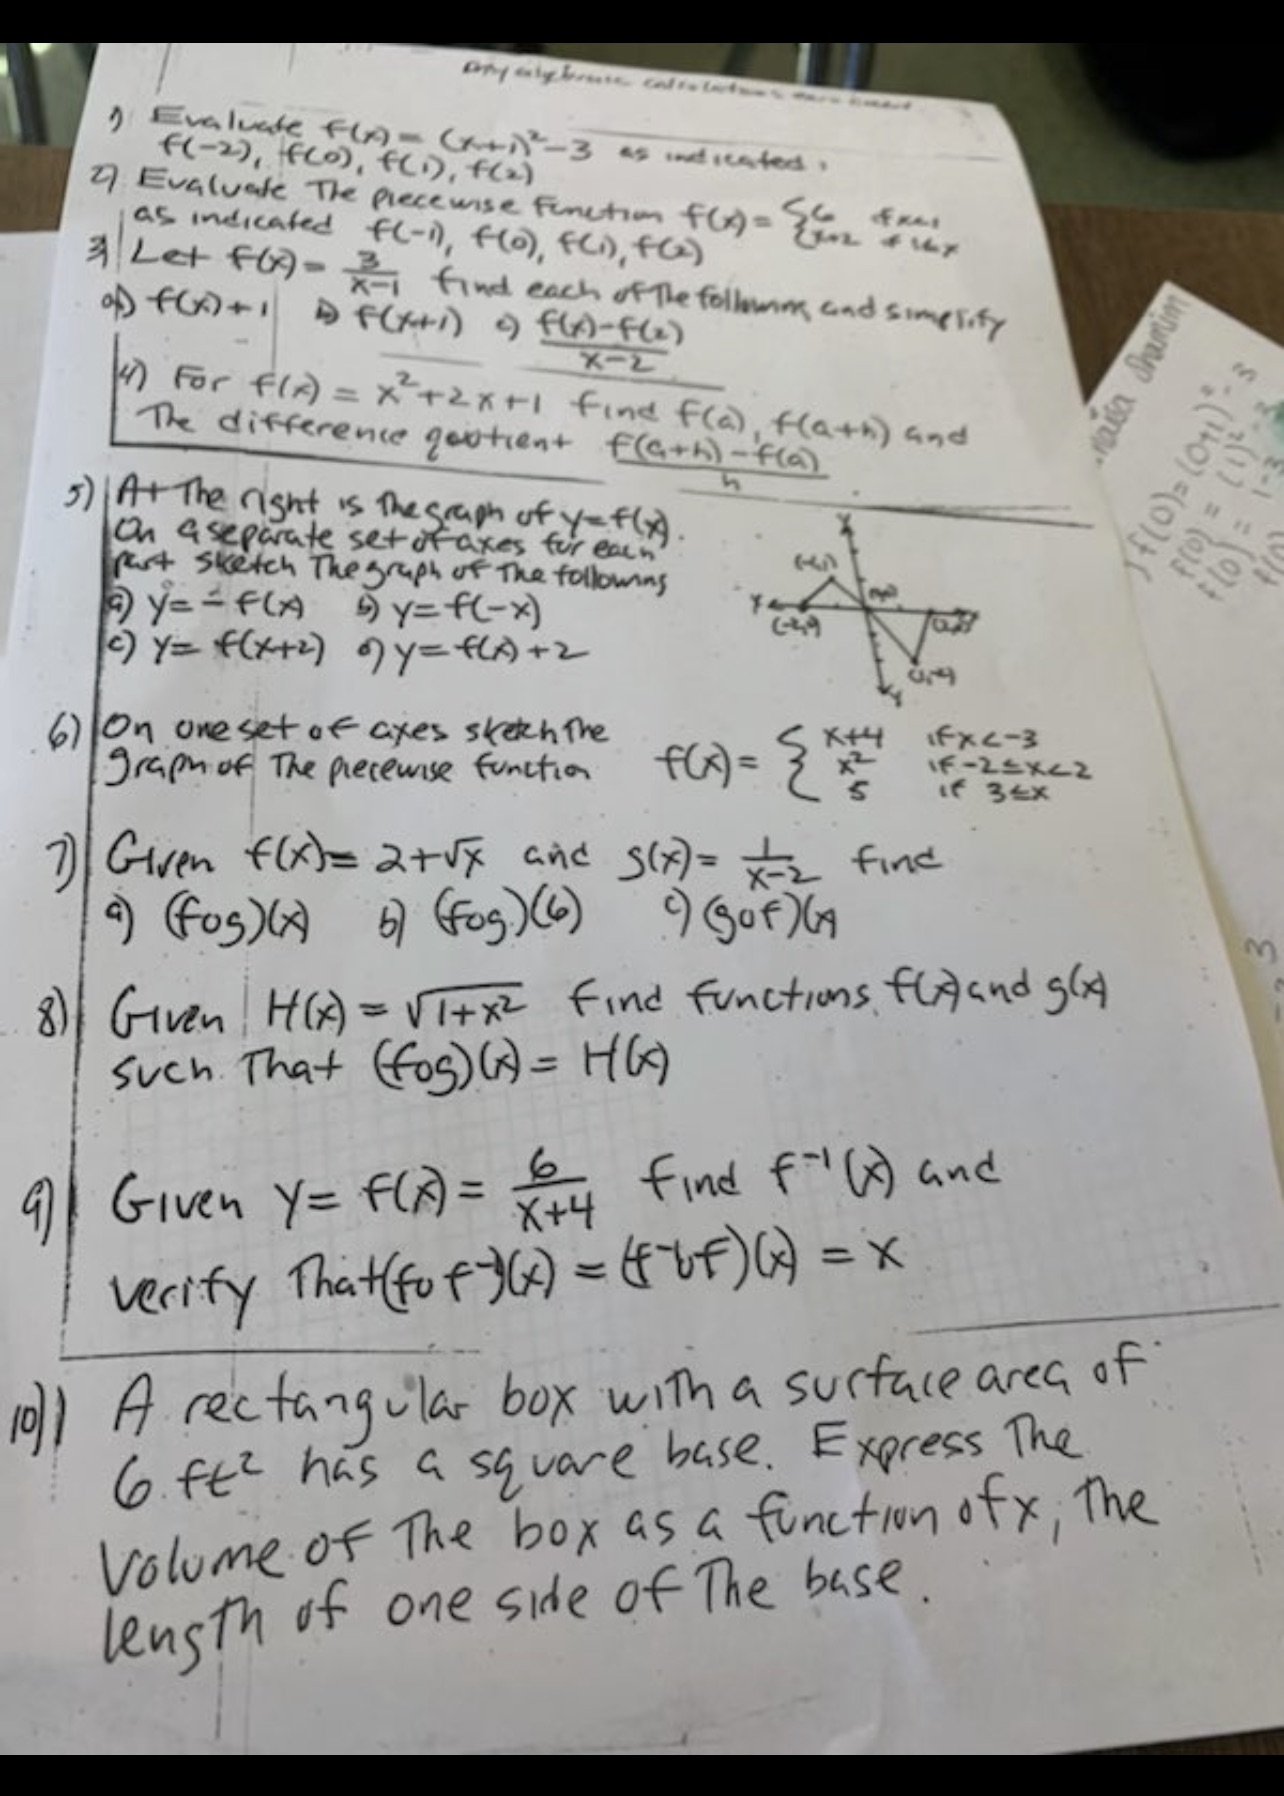 Any algebraic calculations
1) Evaluate f(x) = (x+1)²-3 as indicated.
f(-2), f(0), f(1), f(2)
2) Evaluate The piecewise function f(x) = {6
as indicated f(-1), f(0), f(1), f(2)
3) Let f(x) = 3/(x-1) find each of The following and simplify
a) f(x)+1 b) f(x+1) c) (f(x)-f(2))/(x-2)
4) For f(x) = x²+2x+1 find f(a), f(a+h) and
The difference quotient (f(a+h)-f(a))/h
5) At The right is The graph of y=f(x).
On a separate set of axes for each
part sketch The graph of The following
a) y= -f(x) b) y=f(-x)
c) y= f(x+2) d) y=f(x)+2
Y
X
(-2,0)
(1,-2)
6) On one set of axes sketch The
graph of The piecewise function f(x) = { x+4 if x<-3
x² if -2≤x<2
5 if 3≤x
7) Given f(x)= 2+√x and g(x)= 1/(x-2) find
a) (fog)(x) b) (fog)(6) c) (gof)(x)
8) Given H(x) = √(1+x²) find functions f(x) and g(x)
such That (fog)(x) = H(x)
9) Given y= f(x) = 6/(x+4) find f⁻¹(x) and
verify That (fof⁻¹)(x) = (f⁻¹of)(x) = x
10) A rectangular box with a surface area of
6 ft² has a square base. Express The
volume of The box as a function of x, The
length of one side of The base.
f(0)=(0+1)²-3
f(0) = (1)²-3
f(0) = 1-3